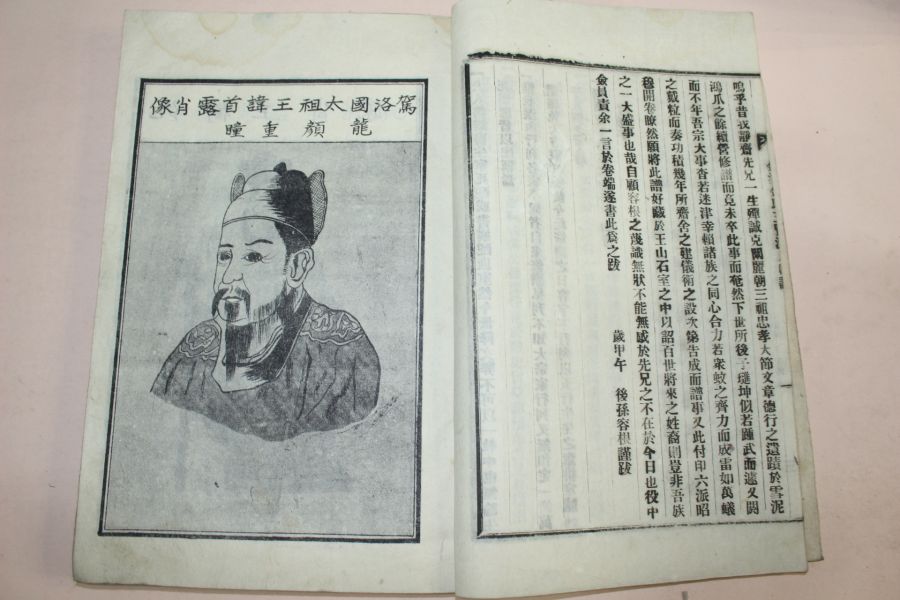 嗚乎昔我靜齋先兄一生殫誠克闡麗朝三祖忠孝大節文章德行之遺蹟於雪泥
鴻爪之餘續營修譜而竟未卒此事而奄然下世所後子璡坤似若踵武而遽又閼
而不年吾宗大事杳若迷津幸賴諸族之同心合力若衆蚊之齊力而成雷如萬蟻
之戴粒而奏功積幾年所齋舍之建儀衛之設次第告成而譜事又此付印六派昭
穆開卷瞭然願將此譜好藏於王山石室之中以詔百世將來之姓裔則豈非吾族
之一大盛事也哉自顧容根之蔑識無狀不能無感於先兄之不在於今日也役中
僉員責余一言於卷端遂書此爲之跋
歲甲午　後孫容根謹跋
駕洛國太祖王諱首露肖像
龍顏重瞳